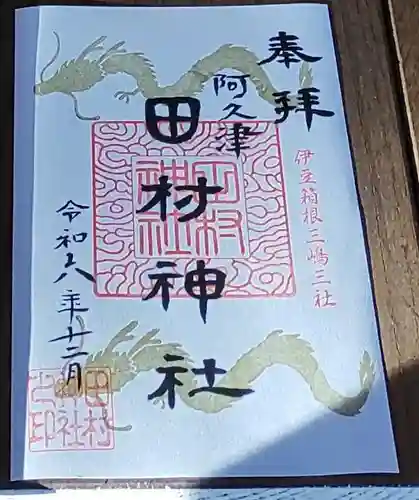 奉拝
伊豆箱根三嶋三社
阿久津
田村神社
田村神社
令和六年十二月
田村
神社
之印